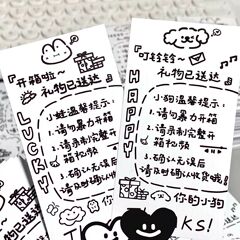 『开箱啦~
礼物已送达
LUCKY!
小蛙温馨提示:
1.请勿暴力开箱
2.请录制完整开
箱视频
3.确认无误后
请及时确认收货哦!
『叮铃铃~
礼物已送达
HAPPY!
小狗温馨提示:
1.请勿暴力开箱
2.请录制完整开
箱视频
3.确认无误后
请及时确认收货哦!
你的小狗
KS!